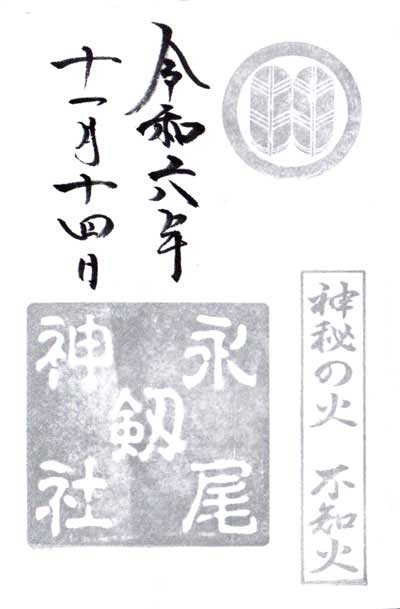 神秘の火 不知火
令和六年
十一月十四日
永尾
剱
神社